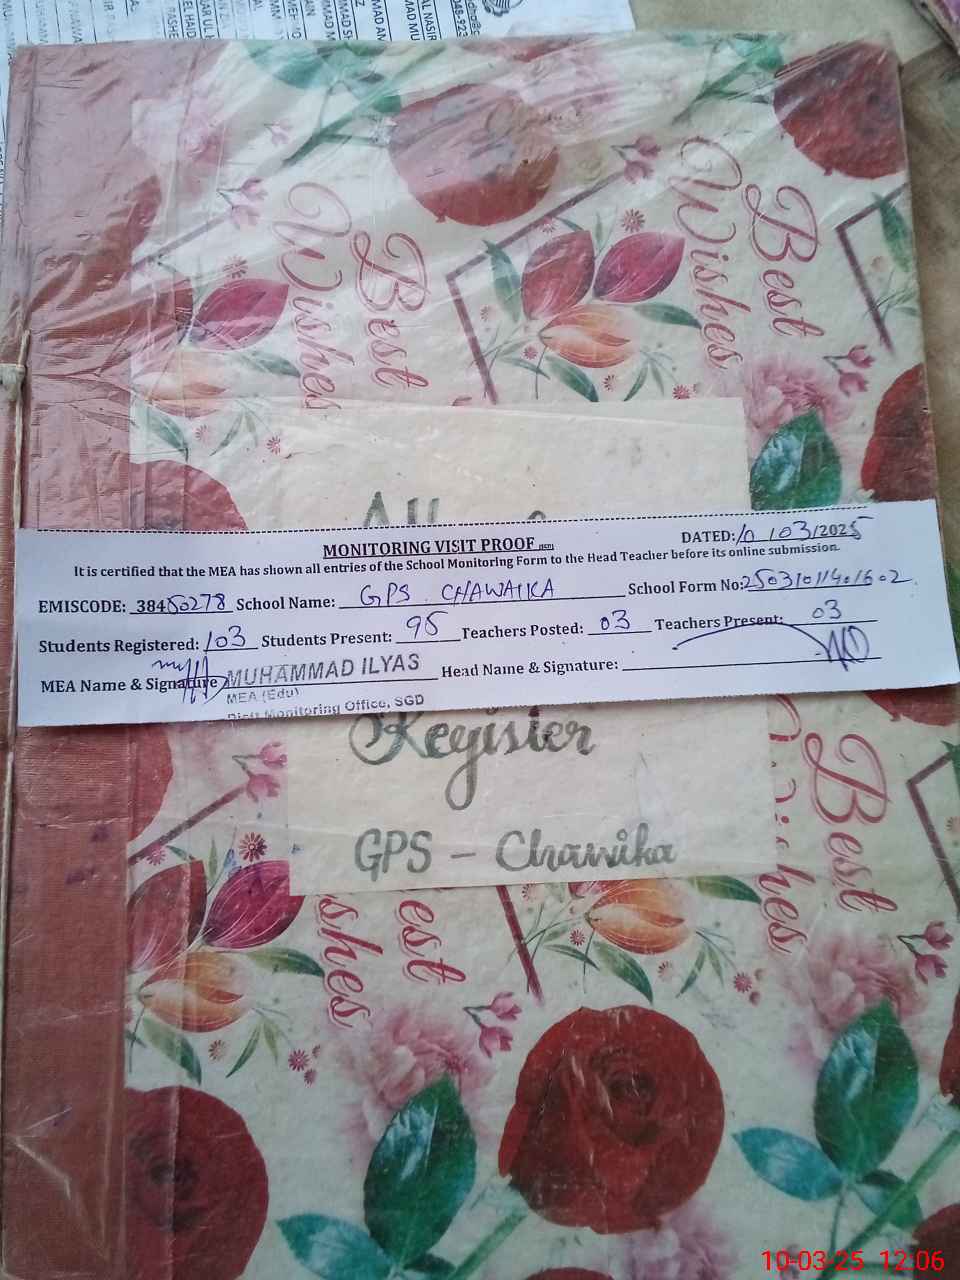 Best
Wishes
Best
Wishes
All
MONITORING VISIT PROOF (SGD)
DATED: 10/03/2025
It is certified that the MEA has shown all entries of the School Monitoring Form to the Head Teacher before its online submission.
EMISCODE: 38450278 School Name: GPS CHAWAIKA School Form No: 25031011401602
Students Registered: 103 Students Present: 95 Teachers Posted: 03 Teachers Present: 03
MEA Name & Signature MUHAMMAD ILYAS Head Name & Signature:
MEA (Edu)
Distt Monitoring Office, SGD
Register
GPS – Chawika
Best
Wishes
est
shes
10-03-25 12:06